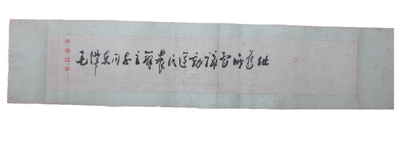 毛泽东同志主办农民运动讲习所旧址